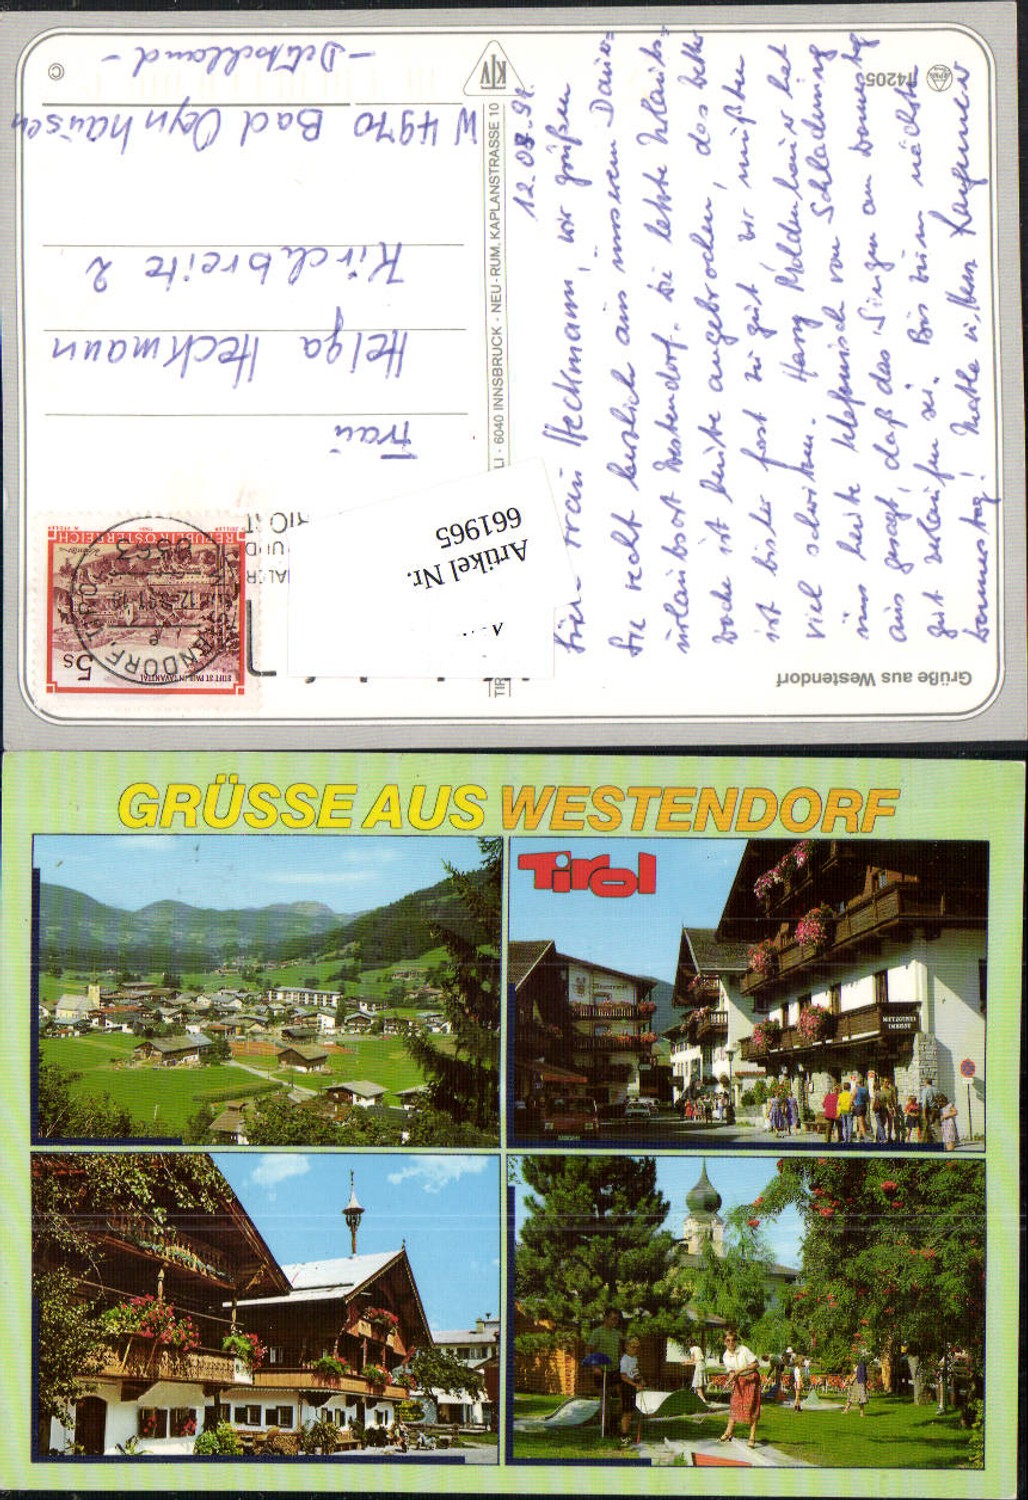 Grüße aus Westendorf
12.08.92.
Liebe Frau Heckmann, wir grüßen
Sie recht herzlich aus unserem Dauer=
urlaubsort Westendorf. Die letzte Urlaubs=
woche ist heute angebrochen, das Wetter
ist bisher fast zu gut wir mußten
viel schwitzen. Harry Moldenhauer hat
uns heute telefonisch von Schladming
aus gesagt, daß das Singen am Donnerstag
gut verlaufen sei. Bis zum nächsten
Donnerstag!
74205
KTV
6040 INNSBRUCK - NEU - RUM, KAPLANSTRASSE 10
5s
STIFT ST. PAUL IM LAVANTTAL
REPUBLIK ÖSTERREICH
WESTENDORF TIROL
6363
Artikel Nr.
661965
Frau
Helga Heckmann
Kirchbreite 2
W 4970 Bad Oeynhausen
- Deutschland -
©
GRÜSSE AUS WESTENDORF
Tirol
METZGEREI
IMBISSE